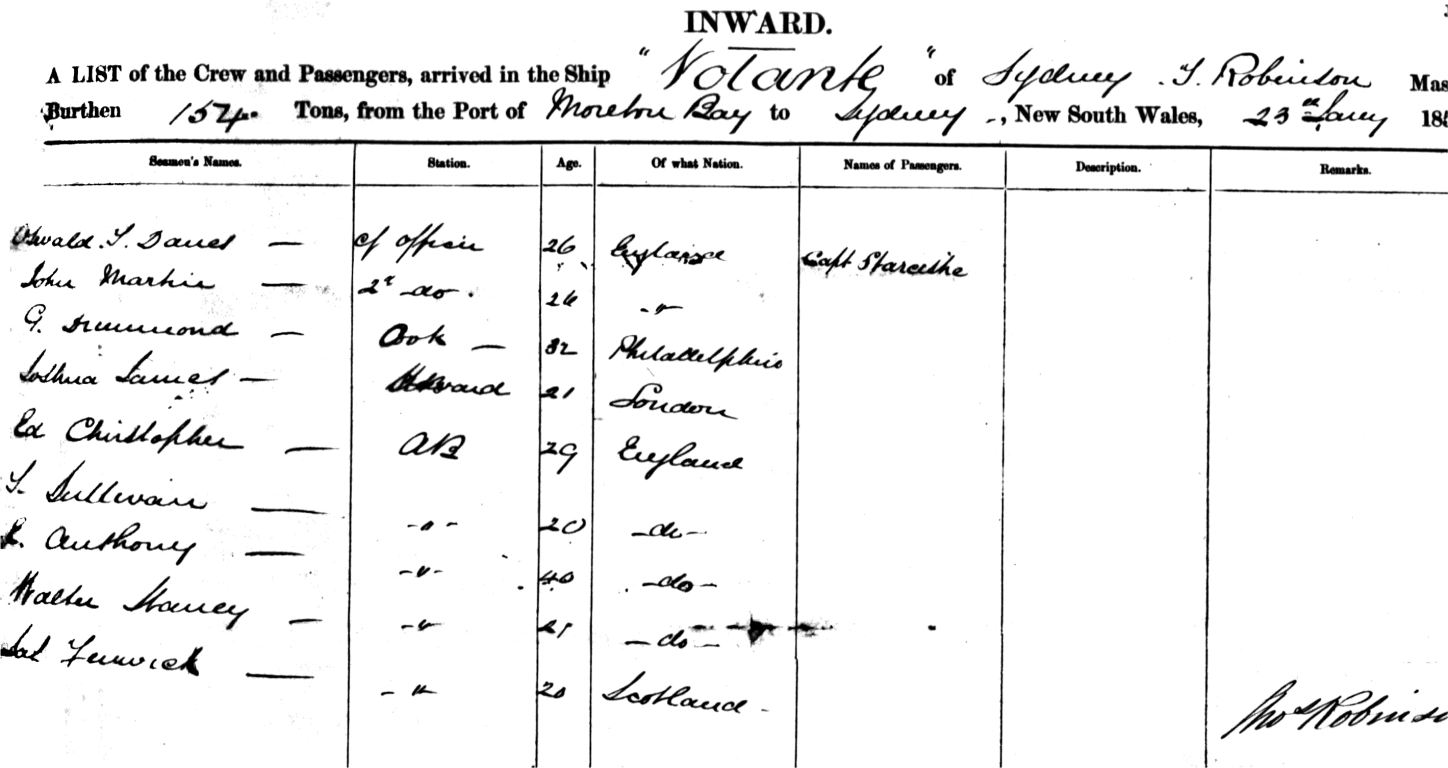 INWARD.
A LIST of the Crew and Passengers, arrived in the Ship "Votante" of Sydney T. Robinson Mas
Burthen 154 Tons, from the Port of Moreton Bay to Sydney -, New South Wales, 23rd Jany 185
Seamen's Names. Station. Age. Of what Nation. Names of Passengers. Description. Remarks.
Oswald. T. Davies — cf officer 26 England Capt
John Martin — 2d do. 26 "
G. Drummond — Cook — 32 Philadelphia
Joshua James — Steward 21 London
Ed Christopher — AB 29 England
T. Sullivan — -"- 20 -do-
Anthony — -"- 40 -do-
Walter — -"- 21 -do-
Fenwick — -"- 20 Scotland -
Thos Robinso